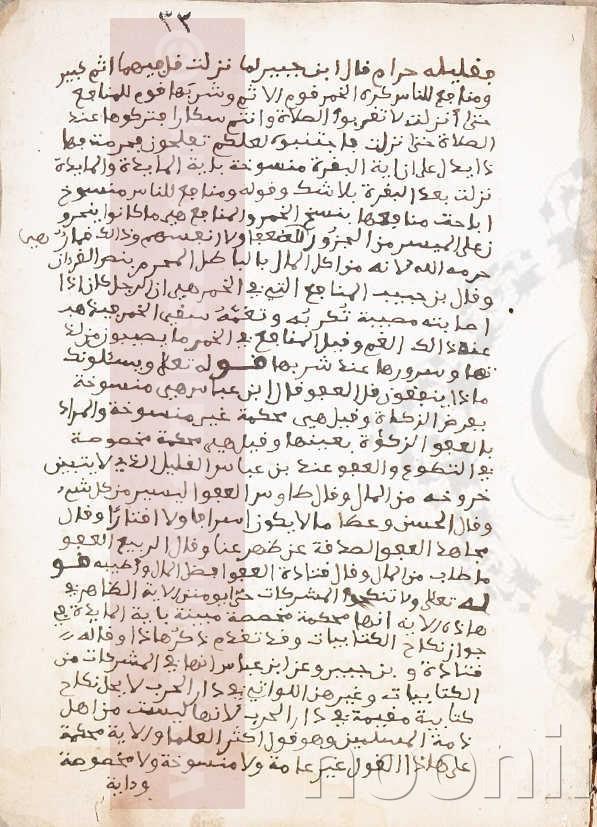 ٣٣
فقليله حرام قال ابن جبير لما نزلت قل فيهما اثم كبير
ومنافع للناس كره الخمر قوم للاثم وشربها قوم للمنافع
حتى أنزلت لا تقربوا الصلاة وانتم سكارا فتركوها عند
الصلاة حتى نزلت فاجتنبوه لعلكم تفلحون فحرمت فها
ذا يدل على ان اية البقرة منسوخة باية المايدة والمايدة
نزلت بعد البقرة بلا شك وقوله ومنافع للناس منسوخ
اباحت منافعها بنسخ الخمر والمنافع هي ما كانوا ينحرو
ن على الميسر من الجزور للضعفا ولا انفسهم وذالك قمار
حرمه الله لانه من اكل المال بالباطل المحرم بنص القرءان
وقال بن حبيب المنافع التي في الخمر هي ان الرجل كان اذا
اصابته مصيبة تكربه وتغمه سقى الخمر فيذهب
عنه ذالك الغم وقيل المنافع في الخمر ما يصيبون من لذ
تها وسرورها عند شربها قوله تعلى ويسئلونك
ماذا ينفقون قل العفو قال ابن عباس هي منسوخة
بفرض الزكاة وقيل هي محكمة غير منسوخة والمراد
بالعفو الزكوة بعينها وقيل هي محكمة مخصوصة
في التطوع والعفو عند بن عباس القليل الذي لا يتبين
خروجه من المال وقال طاوس العفو اليسير من كل شيء
وقال الحسن وعطا ما لا يكون اسرافا ولا اقتارا وقال
مجاهد العفو الصدقة عن ظهر غنا وقال الربيع العفو
ما طاب من المال وقال قتادة العفو افضل المال واطيبه قو
له تعلى ولا تنكحوا المشركات حتى يومن الاية الظاهر في
هاذه الاية انها محكمة مخصصة مبينة باية المايدة في
جواز نكاح الكتابيات وقد تقدم ذكر هاذا وقاله
قتادة و بن جبير وعن ابن عباس انها في المشركات من
الكتابيات وغيرهن اللواتي في دار الحرب لا يحل نكاح
كتابية مقيمة في دار الحرب لانها ليست من اهل
ذمة المسلمين وهو قول اكثر العلما والاية محكمة
على هاذا القول غير عامة ولا منسوخة ولا مخصوصة
وداية
noonl